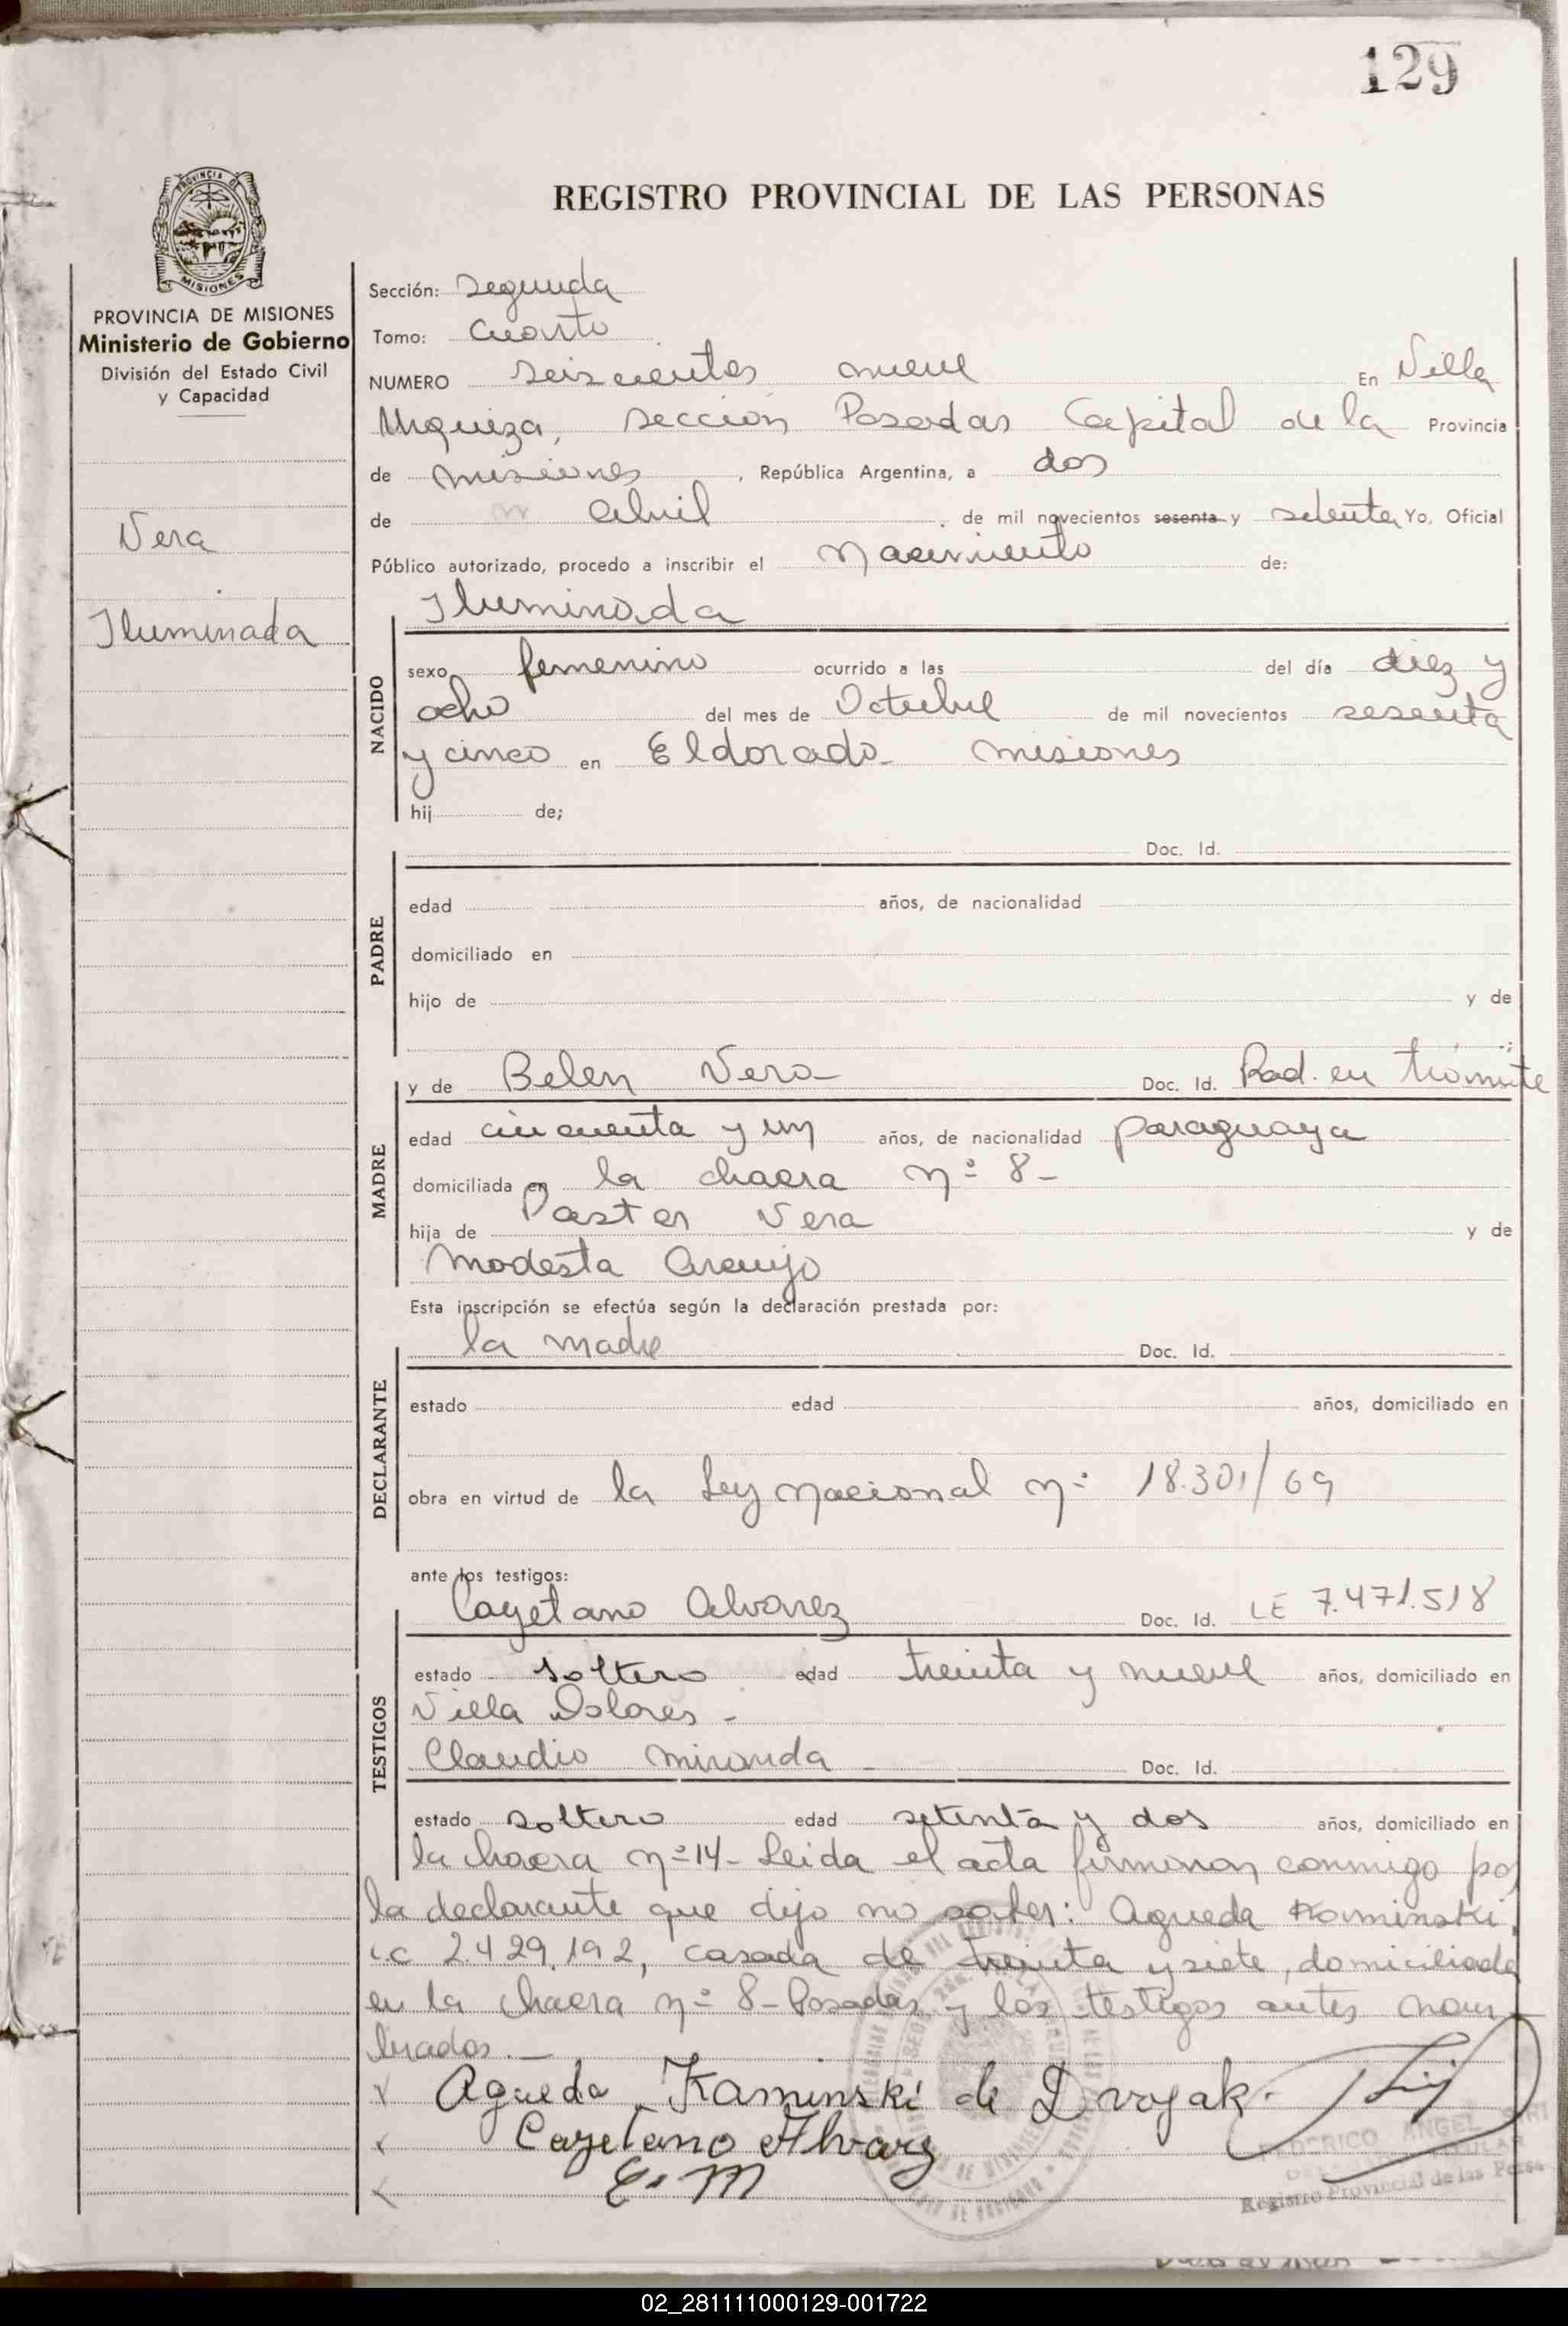 129
REGISTRO PROVINCIAL DE LAS PERSONAS
PROVINCIA DE
MISIONES
PROVINCIA DE MISIONES
Ministerio de Gobierno
División del Estado Civil
y Capacidad
Vera
Iluminada
Sección: Segunda
Tomo: Cuarto
NUMERO seiscientos nueve En Villa
Urquiza, sección Posadas Capital de la Provincia
de misiones, República Argentina, a dos
de abril de mil novecientos sesenta y setenta Yo, Oficial
Público autorizado, procedo a inscribir el nacimiento de:
Iluminada
NACIDO
sexo femenino ocurrido a las del día diez y
ocho del mes de Octubre de mil novecientos sesenta
y cinco en Eldorado - misiones
hij de;
PADRE
Doc. Id.
edad años, de nacionalidad
domiciliado en
hijo de y de
MADRE
y de Belen Vera Doc. Id. Rad. en trámite
edad cincuenta y un años, de nacionalidad paraguaya
domiciliada en la chacra nº 8-
hija de Paster Vera y de
modesta Araujo
Esta inscripción se efectúa según la declaración prestada por:
DECLARANTE
la madre Doc. Id.
estado edad años, domiciliado en
obra en virtud de la Ley nacional nº 18.301/69
ante los testigos:
TESTIGOS
Cayetano Alvarez Doc. Id. LE 7.471.518
estado soltero edad treinta y nueve años, domiciliado en
Villa Dolores -
Claudio miranda - Doc. Id.
estado soltero edad setenta y dos años, domiciliado en
la chacra nº 14- Leida el acta firmaron conmigo por
la declarante que dijo no saber: Agueda Kaminski,
L.C 2.429.192, casada de treinta y siete, domiciliada
en la chacra nº 8- Posadas y los testigos antes nom-
brados.-
x Agueda Kaminski de Dvojak.
x Cayetano Alvarez
x C. M
FEDERICO ANGEL
Registro Provincial de las Perso
02_281111000129-001722